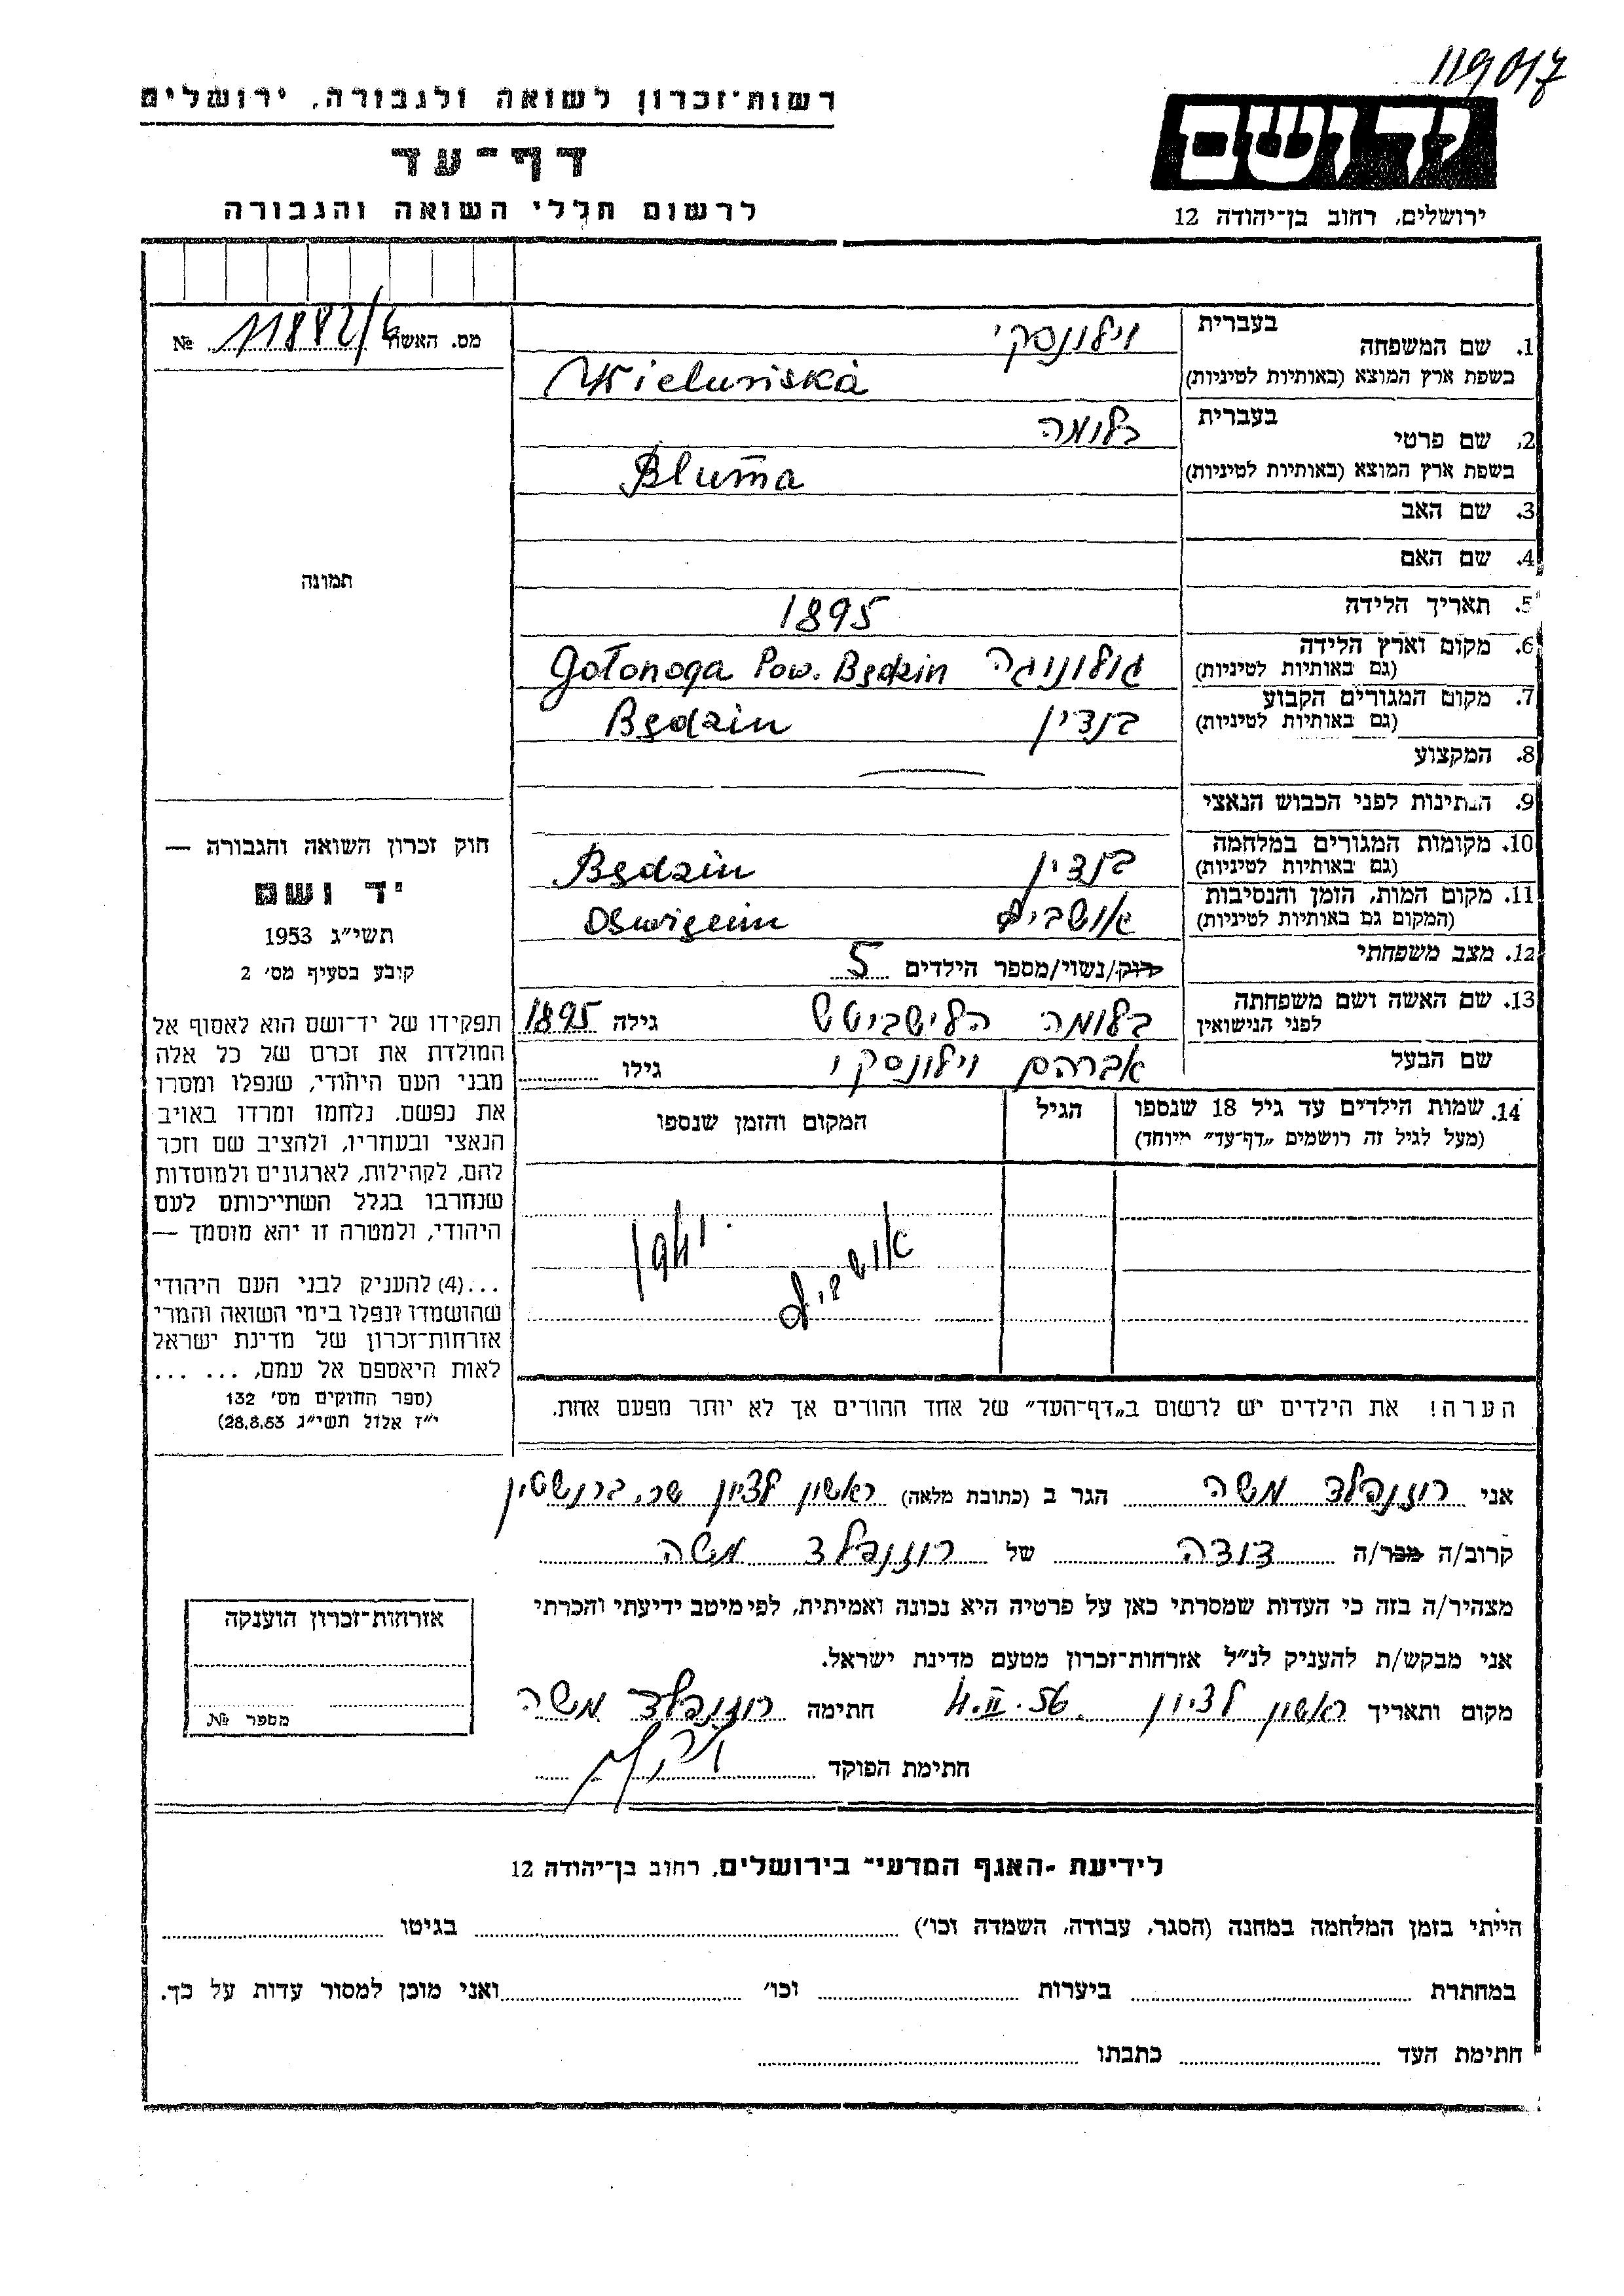 119017
רשות־זכרון לשואה ולגבורה, ירושלים
דף־עד
לרשום חללי השואה והגבורה
יד ושם
ירושלים, רחוב בן־יהודה 12
מס. האשה 11882/6 №
1. שם המשפחה בעברית ווילונסקי
בשפת ארץ המוצא (באותיות לטיניות) Wieluńska
2. שם פרטי בעברית בלומה
בשפת ארץ המוצא (באותיות לטיניות) Bluma
3. שם האב
4. שם האם
5. תאריך הלידה 1895
6. מקום וארץ הלידה (גם באותיות לטיניות) גולונוגה Gołonoga Pow. Będzin
7. מקום המגורים הקבוע (גם באותיות לטיניות) בנדין Będzin
8. המקצוע
9. הנתינות לפני הכבוש הנאצי
10. מקומות המגורים במלחמה (גם באותיות לטיניות) בנדין Będzin
11. מקום המות, הזמן והנסיבות (המקום גם באותיות לטיניות) אושביץ Oswięcim
12. מצב משפחתי רוק/נשוי/מספר הילדים 5
13. שם האשה ושם משפחתה לפני הנישואין בלומה גילה 1895
שם הבעל אברהם ווילונסקי גילו
14. שמות הילדים עד גיל 18 שנספו (מעל לגיל זה רושמים „דף־עד” מיוחד) הגיל המקום והזמן שנספו
אושביץ
הערה! את הילדים יש לרשום ב„דף־העד” של אחד ההורים אך לא יותר מפעם אחת.
תמונה
חוק זכרון השואה והגבורה —
יד ושם
תשי״ג 1953
קובע בסעיף מס׳ 2
תפקידו של יד־ושם הוא לאסוף אל
המולדת את זכרם של כל אלה
מבני העם היהודי, שנפלו ומסרו
את נפשם, נלחמו ומרדו באויב
הנאצי ובעחריו, ולהציב שם וזכר
להם, לקהילות, לארגונים ולמוסדות
שנחרבו בגלל השתייכותם לעם
היהודי, ולמטרה זו יהא מוסמך —
...(4) להעניק לבני העם היהודי
שהושמדו ונפלו בימי השואה והמרי
אזרחות־זכרון של מדינת ישראל
לאות היאספם אל עמם, ... ...
(ספר החוקים מס׳ 132
י״ז אלול תשי״ג 28.8.53)
אני רוזנפלד משה הגר ב (כתובת מלאה) ראשון לציון שכ. ברנשטין
קרוב/ה מכר/ה דודה של רוזנפלד משה
מצהיר/ה בזה כי העדות שמסרתי כאן על פרטיה היא נכונה ואמיתית, לפי מיטב ידיעתי והכרתי
אני מבקש/ת להעניק לנ״ל אזרחות־זכרון מטעם מדינת ישראל.
מקום ותאריך ראשון לציון 4.II.56 חתימה רוזנפלד משה
חתימת הפוקד
אזרחות־זכרון הוענקה
מספר №
לידיעת ״האגף המדעי״ בירושלים, רחוב בן־יהודה 12
הייתי בזמן המלחמה במחנה (הסגר, עבודה, השמדה וכו׳) בגיטו
במחתרת ביערות וכו׳ ואני מוכן למסור עדות על כך.
חתימת העד כתבתו